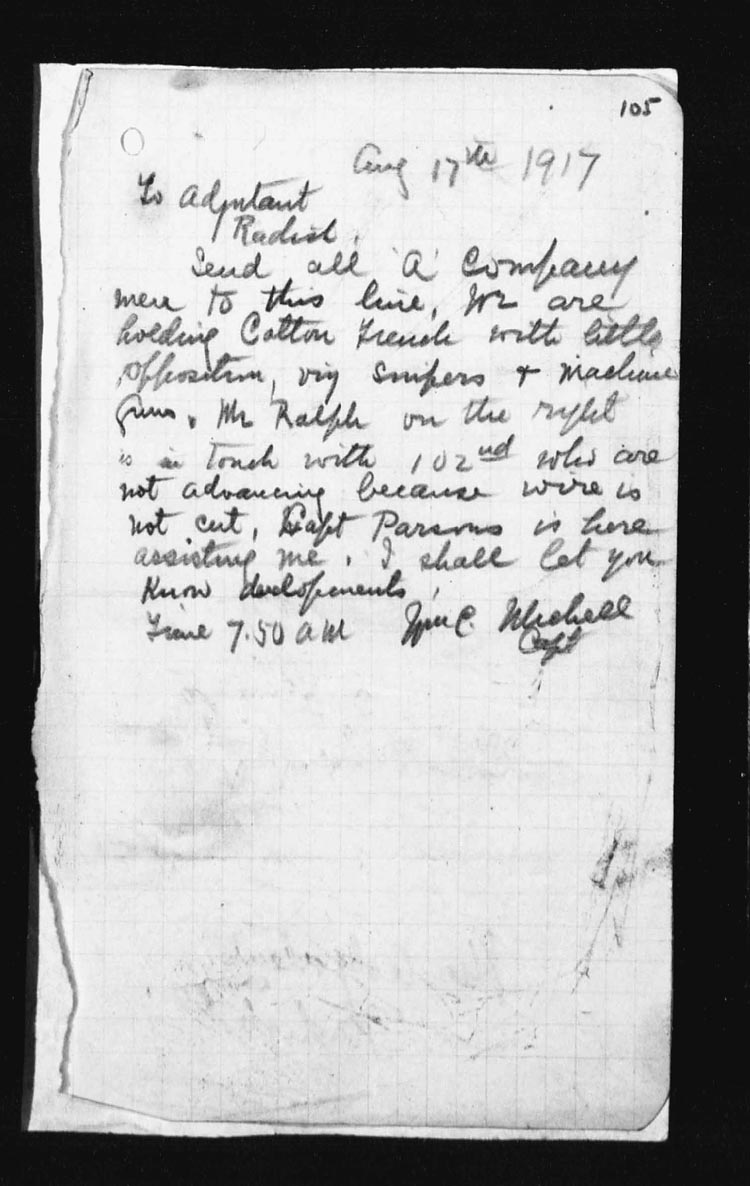 105
Aug 17th 1917
To Adjutant
Radish.
Send all 'A' Company
men to this line, We are
holding Cotton Trench with little
opposition, viz Snipers + Machine
Guns. Mr Ralph on the right
is in touch with 102nd who are
not advancing because wire is
not cut, Capt Parsons is here
assisting me. I shall let you
know developments.
Time 7.50 AM Wm C. Michell
Capt